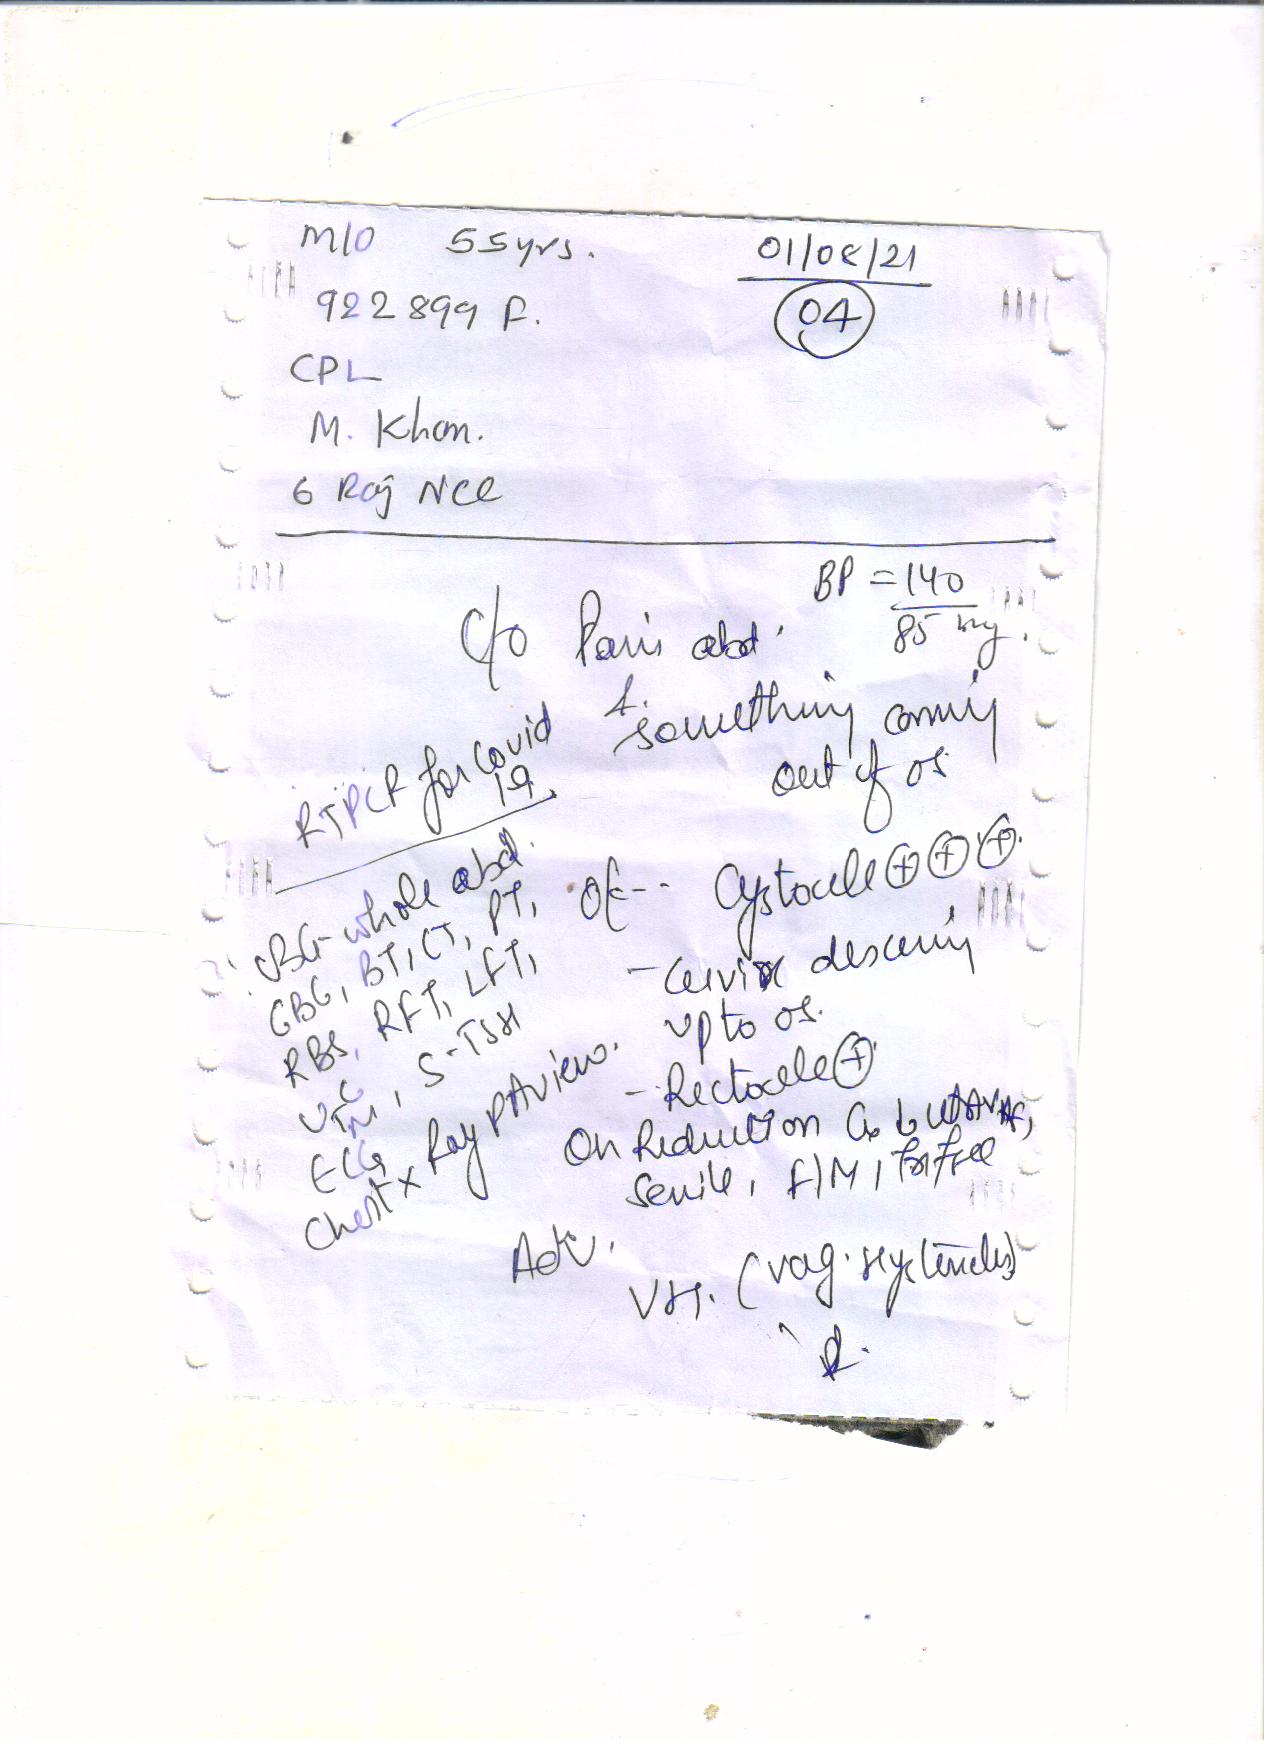 M/O 55yrs.
01/08/21
04
922899 F.
CPL
M. Khan.
6 Raj NCC
BP = 140
85 mg.
C/o Pain abd.
something coming
out of os
RTPCR for Covid
19.
USG - whole abd.
CBC, BT, CT, PT,
RBS, RFT, LFT,
S-TSH
ECG
Chest X Ray PA view.
O/E -- Cystocele ⊕ ⊕ ⊕.
- Cervix
upto os.
- Rectocele ⊕.
On Reduction Cx
Senile, F/M, free
Adv.
VH. (vag.